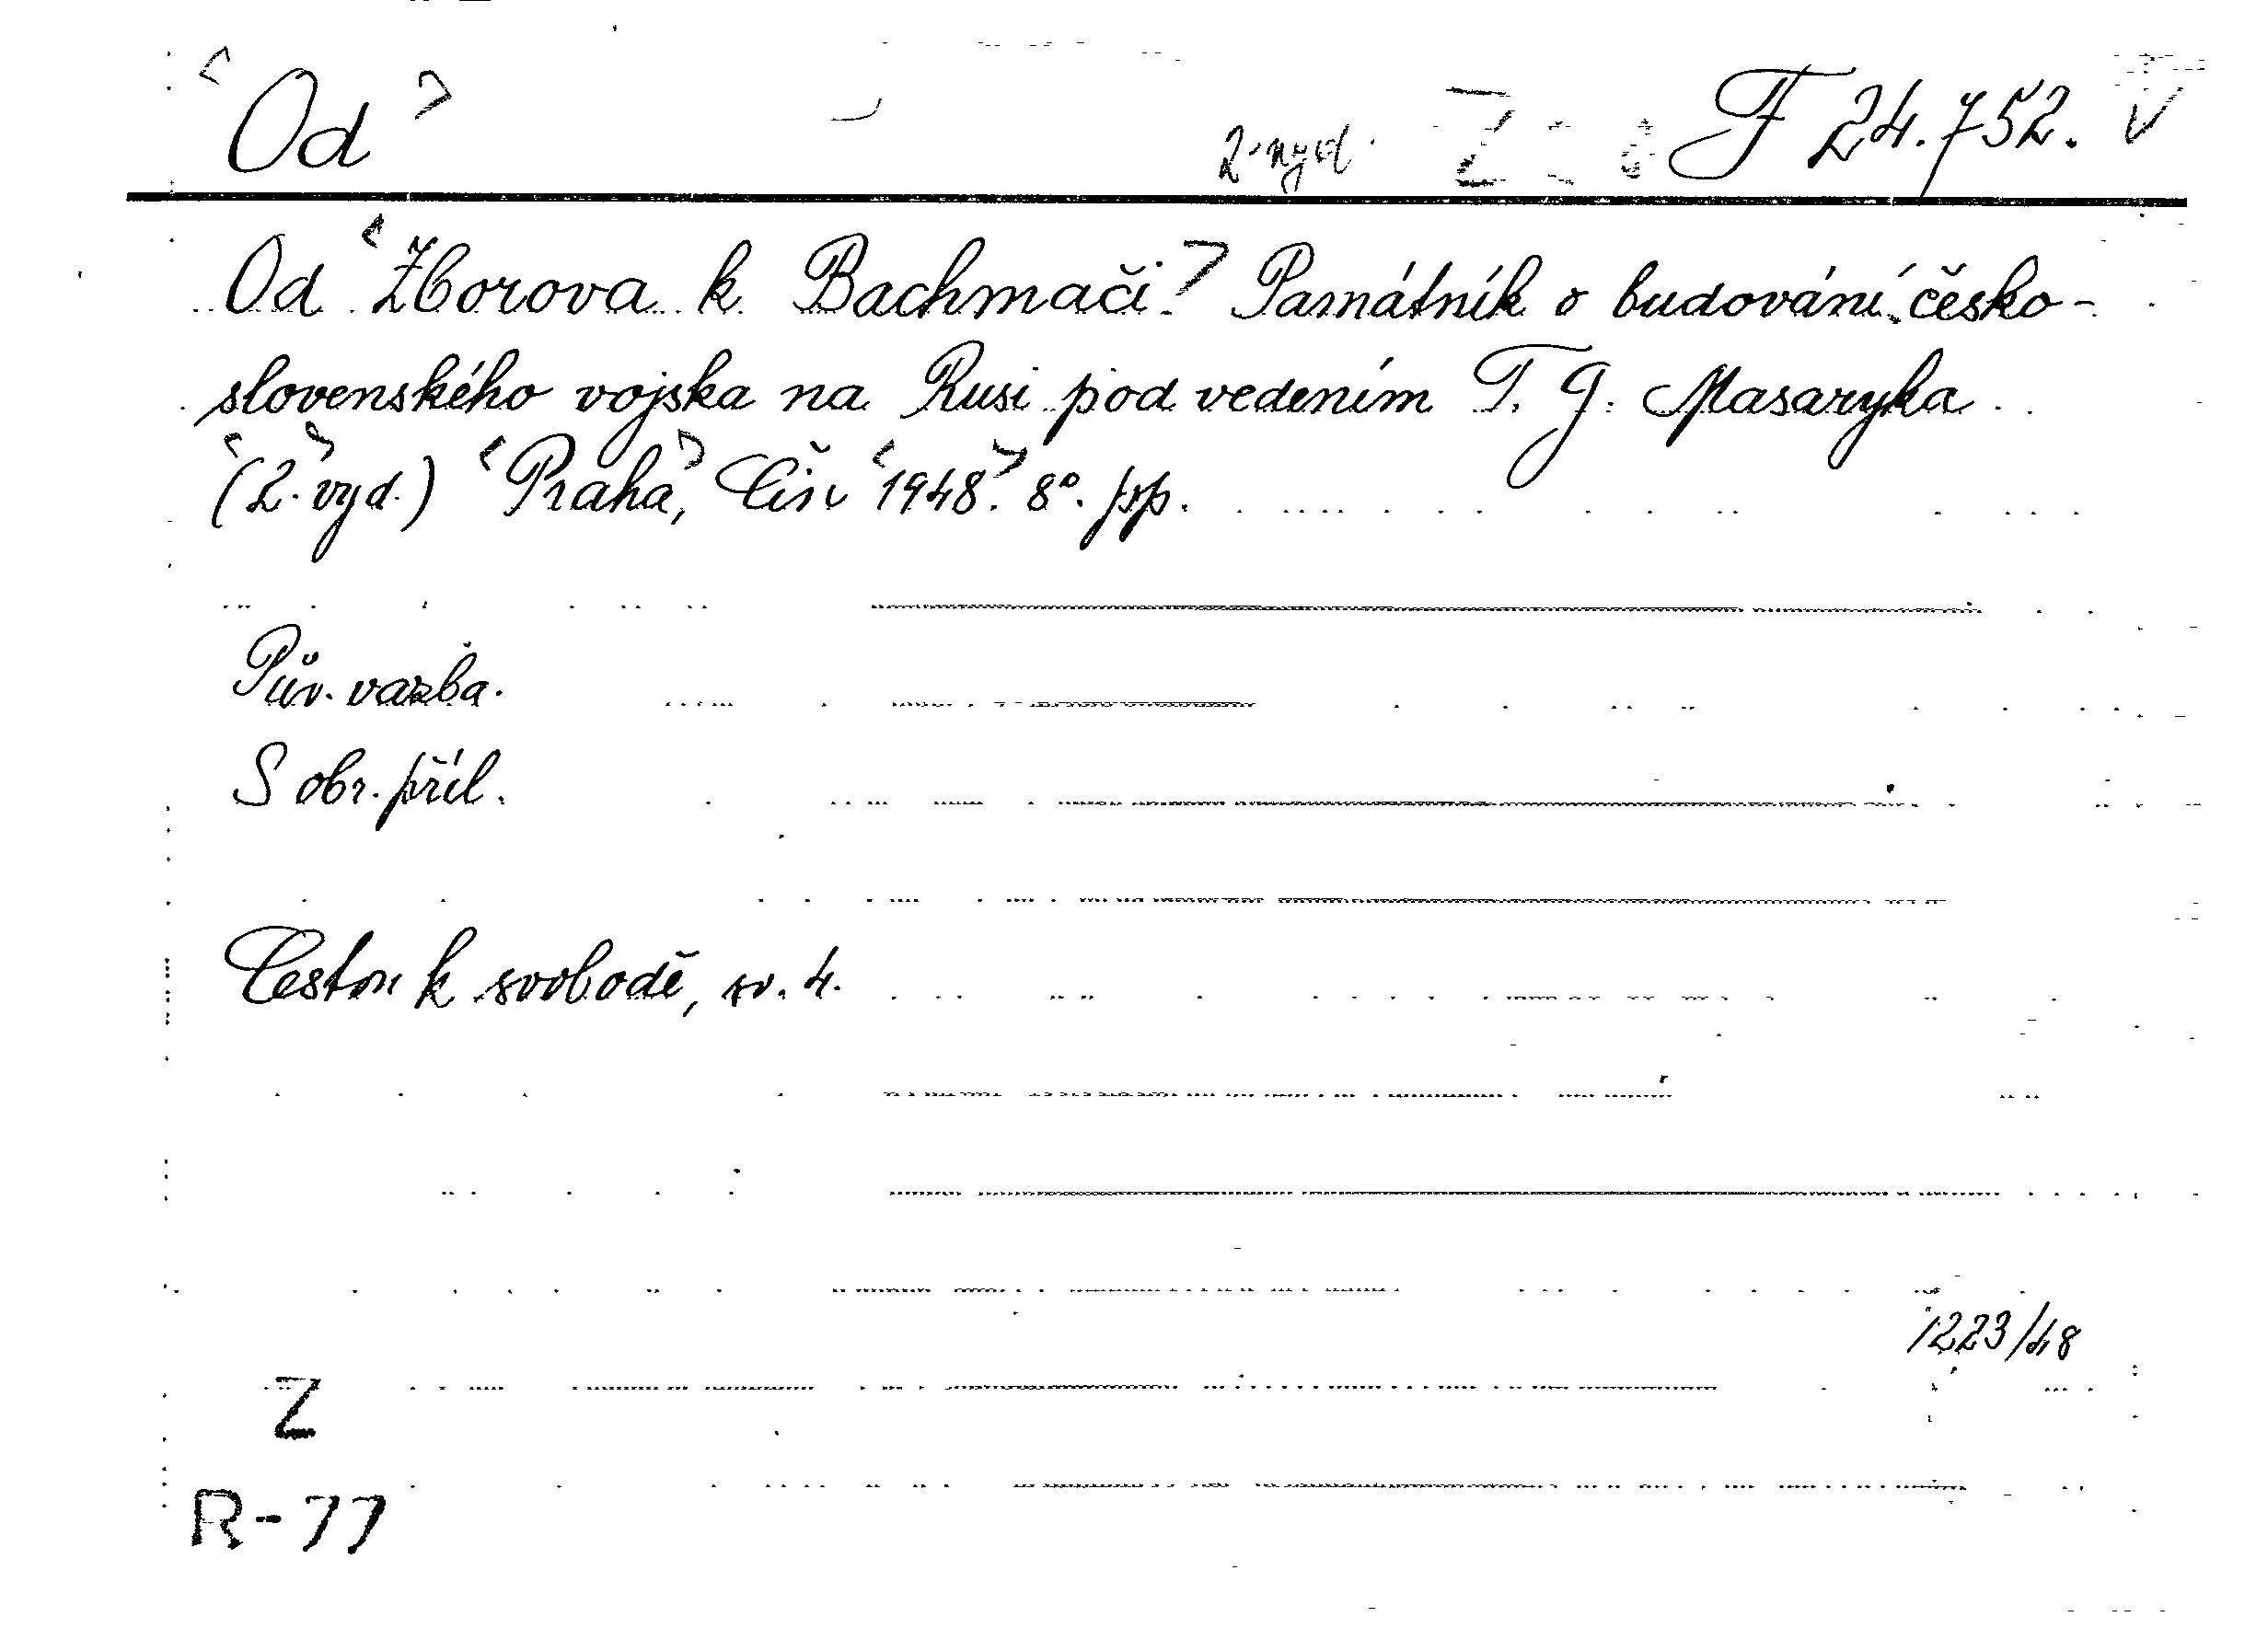 <Od> 2. vyd. Z F 24.752. V
Od <Zborova k Bachmači.> Památník o budování česko-
slovenského vojska na Rusi pod vedením T. G. Masaryka
<(2. vyd.)> <Praha>, Čin <1948>. 8°. pp.
Pův. vazba.
S obr. příl.
Cestou k svobodě, sv. 4.
1223/48
Z
R-77